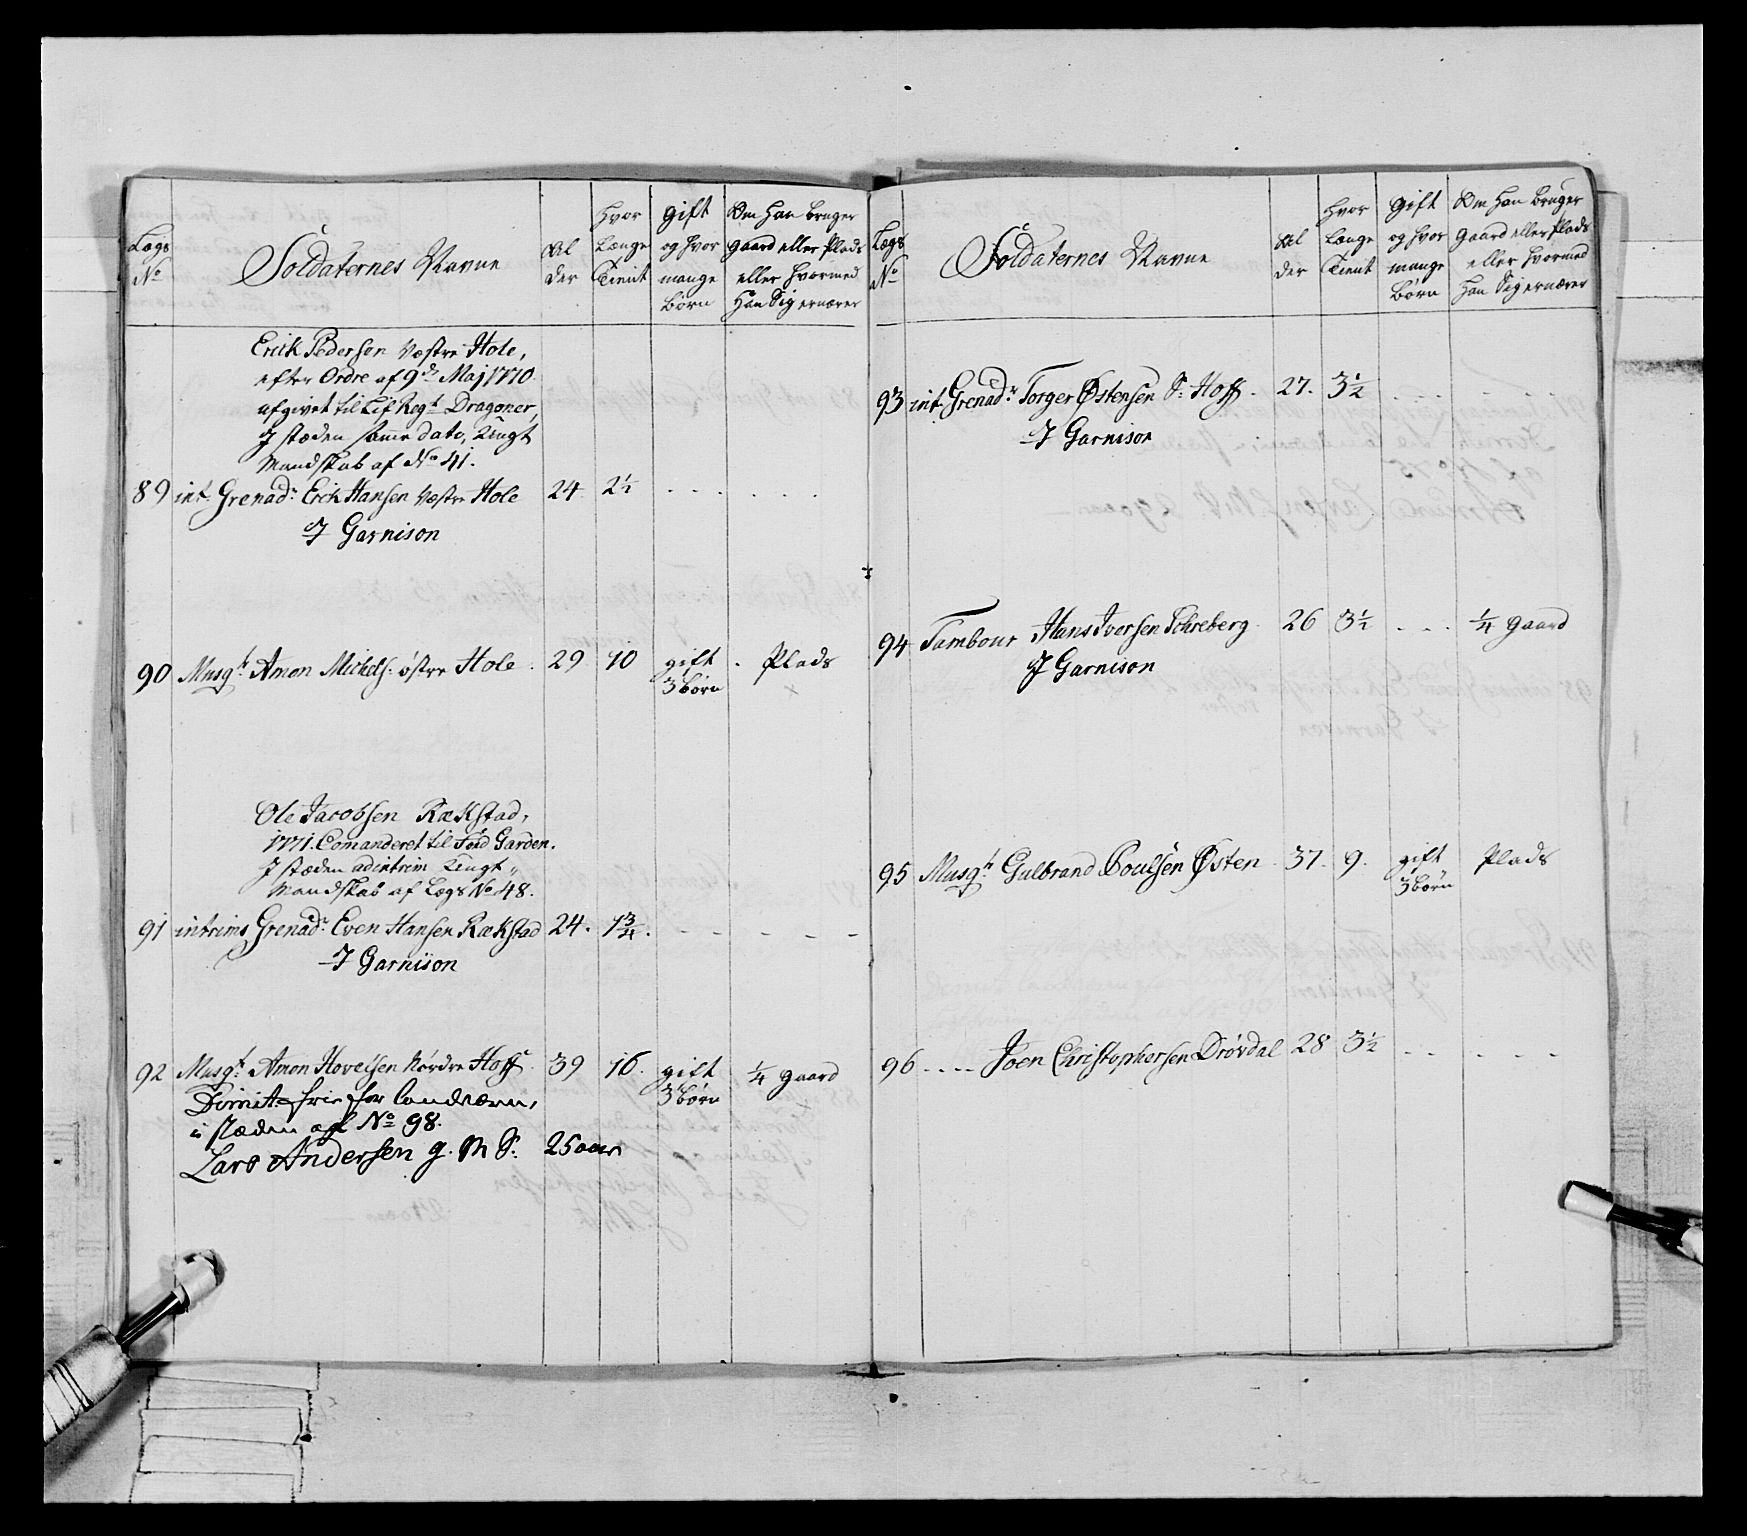 Lægs No
Soldaternes Navne
Alder
hvor Længe Tient
gift og hvor mange børn
Om han bruger gaard eller Plads eller hvormed han Sig ernærer
Erich Pedersen Væstre Hole,
efter Ordre af 9de Maj 1770.
afgivet til Lif Regt Dragoner,
I stæden samme dato, Lingt
Mandskab af No 41.
89 int. Grenadr Erich Hansen Væstre Hole 24 2½ . . . . . .
I Garnison
90 Musqt Amon Michels: østre Hole . 29 10 gift . Plads
3 børn ×
Ole Jacobsen Rækstad,
1771. Comanderet til Fod Garden.
I stæden adintrim Lingt
Mandskab af Lægs No 48.
91 intrims Grenadr Even Hansen Rækstad 24. 1¾. - - - - -
I Garnison
92 Musqt Amon Hovelsen Nórdre Hoff 39 16. gift ¼ gaard
3 børn
Dimit: frie for landværn,
i stæden af No 98.
Lars Andersen g. M S: 25 aar
Lægs No
Soldaternes Navne
Alder
hvor Længe Tient
gift og hvor mange børn
Om han bruger Gaard eller Plads eller hvormed han Sig ernærer
93 int. Grenadr Torger Østensen S: Hoff . 27. 3½ . . . . . .
I Garnison
94 Tambour Hans Iversen Schreberg 26 3½ . . . ¼ gaard
I Garnison
95 Musqt Gulbrand Poulsen Østen 37. 9. gift Plads
3 børn
96 .... Joen Christophersen Drövdal 28 3½ - - - - -